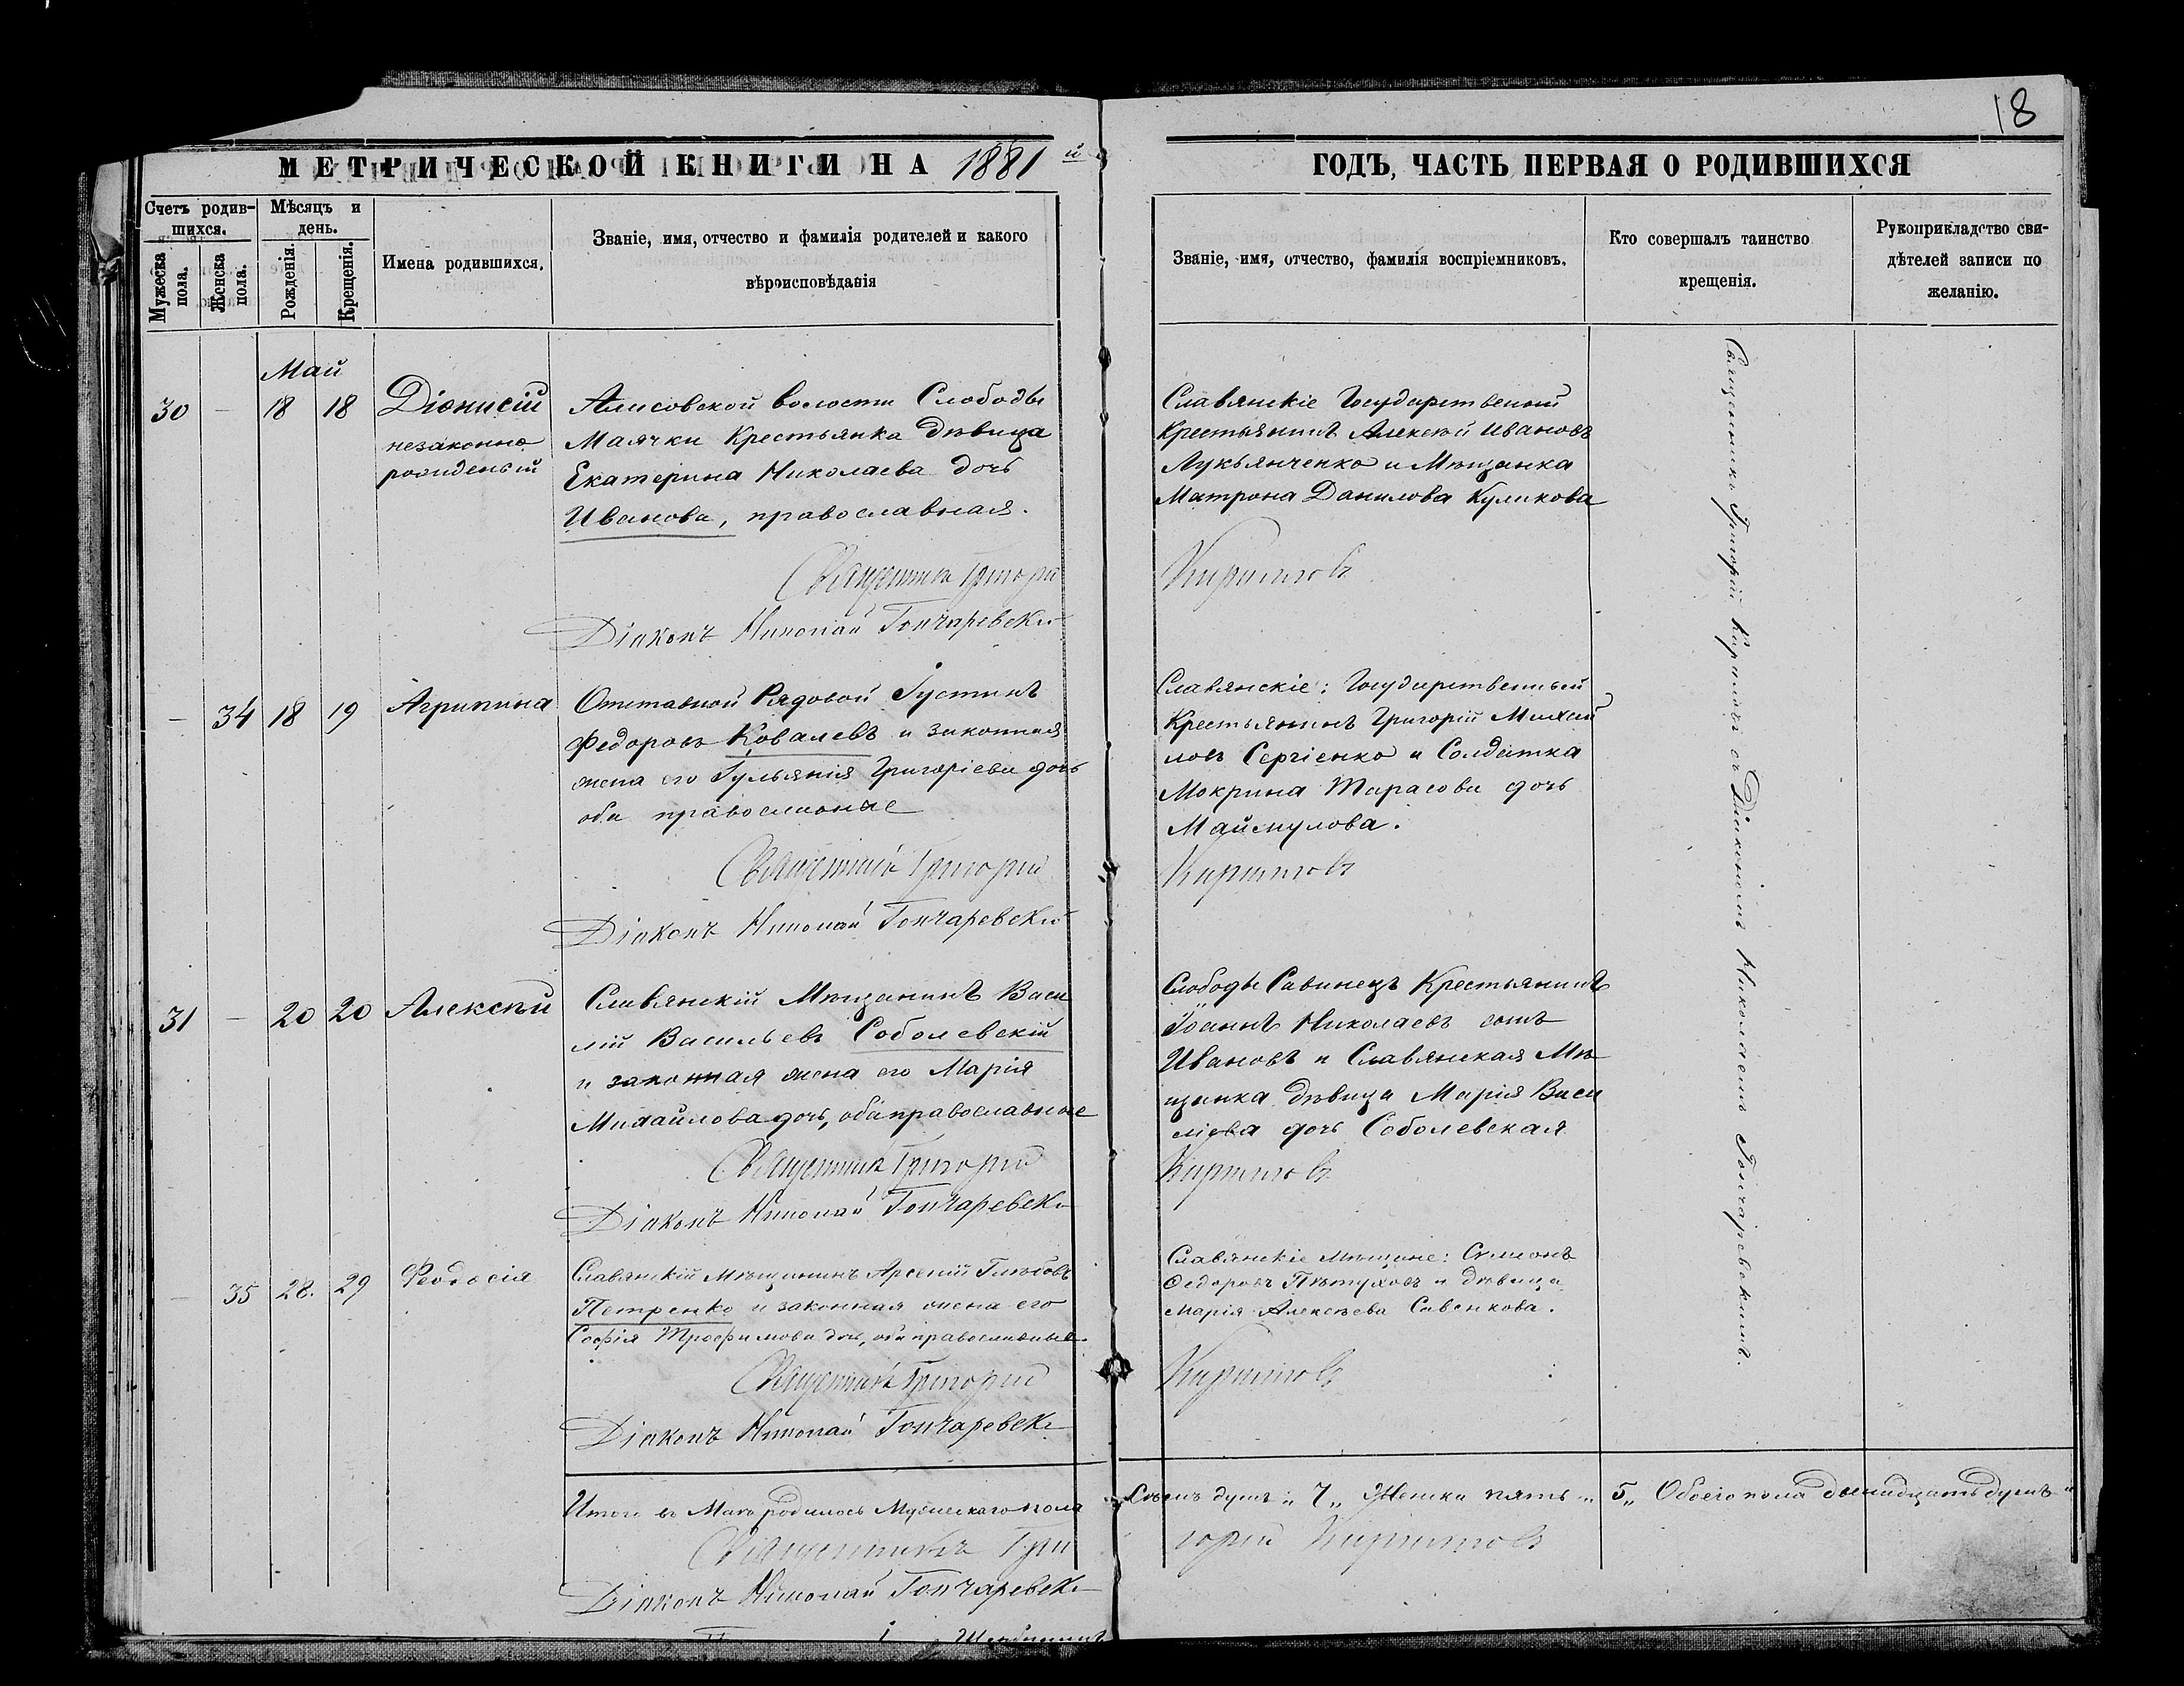 18
МЕТРИЧЕСКОЙ КНИГИ НА 1881 й
ГОДЪ, ЧАСТЬ ПЕРВАЯ О РОДИВШИХСЯ
Счетъ родив-
шихся.
Мужеска пола.
Женска пола.
Мѣсяцъ и
день.
Рожденія.
Крещенія.
Имена родившихся.
Званіе, имя, отчество и фамилія родителей и какого
вѣроисповѣданія
Званіе, имя, отчество, фамилія воспріемниковъ.
Кто совершалъ таинство
крещенія.
Рукоприкладство сви-
дѣтелей записи по
желанію.
Май
30 — 18 18 Діонисій
незаконно
рожденый
волости Слободы
Маячки Крестьянка дѣвица
Екатерина Николаева дочь
Иванова, православная.
Священникъ Григорій
Діаконъ Николай Гончаревскій
Славянскіе Государственый
Крестьянинъ Алексѣй Ивановъ
Лукьянченко и Мѣщанка
Матрона Данилова Куликова
Кириловъ
Священникъ Григорій Кириловъ съ Діакономъ Николаемъ Гончаревскимъ.
— 34 18 19 Агрипина
Отставной Рядовой Іустинъ
Федоровъ Ковалевъ и законная
жена его Іульянія Григоріева дочь
оба православные
Священникъ Григорій
Діаконъ Николай Гончаревскій
Славянскіе: Государственный
Крестьянинъ Григорій Михай
ловъ Сергіенко и Солдатка
Мокрина Тарасова дочь
Кириловъ
31 — 20 20 Алексѣй
Славянскій Мѣщанинъ Васи
лій Васильевъ Соболевскій
и законная жена его Марія
Михайлова дочь, оба православные
Священникъ Григорій
Діаконъ Николай Гончаревскій
Слободы Савинецъ Крестьянинъ
Іоаннъ Николаевъ сынъ
Ивановъ и Славянская Мѣ
щанка дѣвица Марія Васи
ліева дочь Соболевская
Кириловъ
— 35 28. 29 Феодосія
Славянскій Мѣщанинъ Арсеній Глѣбовъ
Петренко и законная жена его
Софія Трофимова дочь, оба православные.
Священникъ Григорій
Діаконъ Николай Гончаревскій
Славянскіе Мѣщане: Симеонъ
Федоровъ Пѣтуховъ и дѣвица
Марія Алексѣева Савенкова.
Кириловъ
Итого въ Маѣ родилось Мужескаго пола Семь душъ „ 7 „ Женска пять „ 5 „ Обоего пола двенадцать душъ
Священникъ Григорій Кириловъ
Діаконъ Николай Гончаревскій